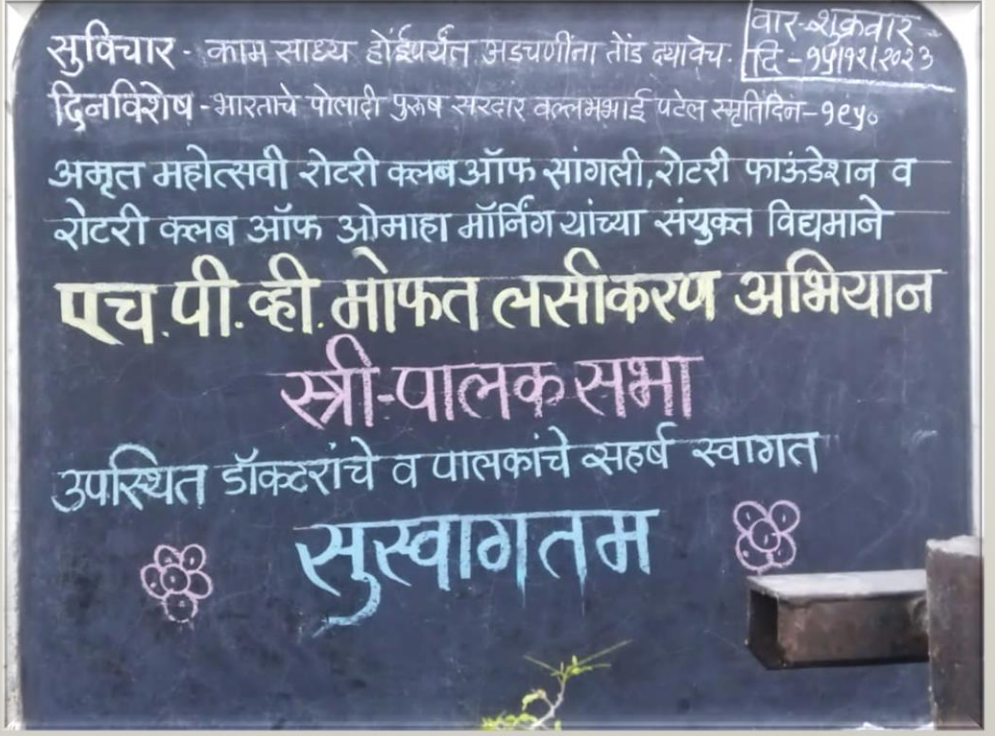 वार-शुक्रवार
दि - १५/१२/२०२३
सुविचार - काम साध्य होईपर्यंत अडचणींना तोंड द्यावेच.
दिनविशेष - भारताचे पोलादी पुरुष सरदार वल्लभभाई पटेल स्मृतिदिन-१९५०
अमृत महोत्सवी रोटरी क्लब ऑफ सांगली, रोटरी फाऊंडेशन व
रोटरी क्लब ऑफ ओमाहा मॉर्निंग यांच्या संयुक्त विद्यमाने
एच.पी.व्ही.मोफत लसीकरण अभियान
स्त्री-पालक सभा
उपस्थित डॉक्टरांचे व पालकांचे सहर्ष स्वागत
सुस्वागतम